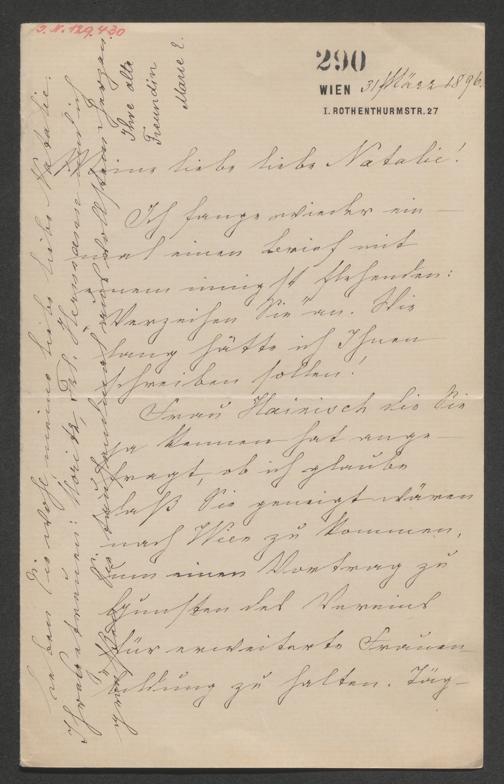 I. N. 129.430
290
WIEN 31 März 1896.
I. ROTHENTHURMSTR. 27
Meine liebe liebe Natalie!
Ich fange wieder ein-
mal einen Brief mit
einem innigst flehenden:
"Verzeihen Sie" an. Wie
lang hätte ich Ihnen
schreiben sollen!
Frau Hainisch die Sie
ja kennen hat ange-
fragt, ob ich glaube
daß Sie geneigt wären
nach Wien zu kommen,
um einen Vortrag zu
Gunsten des Vereins
für erweiterte Frauen
bildung zu halten. Täg-
Leben Sie wohl meine liebe liebe Natalie.
Ihre getreuen: Moritz, Frl. Hermann und ich
grüßen Sie tausendmal aus vollstem Herzen.
Ihre alte
Freundin
Marie E.